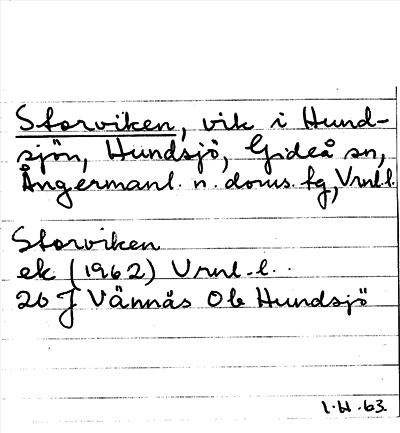 Storviken, vik i Hund-
sjön, Hundsjö, Gideå sn,
Ångermanl. n. doms. fg, Vrnl.l.
Storviken
ek (1962) Vrnl-l.
20 J Vännäs Ob Hundsjö
63.